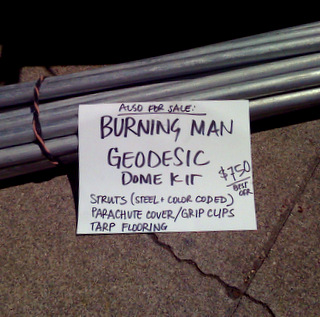 ALSO FOR SALE:
BURNING MAN
GEODESIC
DOME KIT
$750
BEST
OFR
STRUTS (STEEL + COLOR CODED)
PARACHUTE COVER/GRIP CLIPS
TARP FLOORING